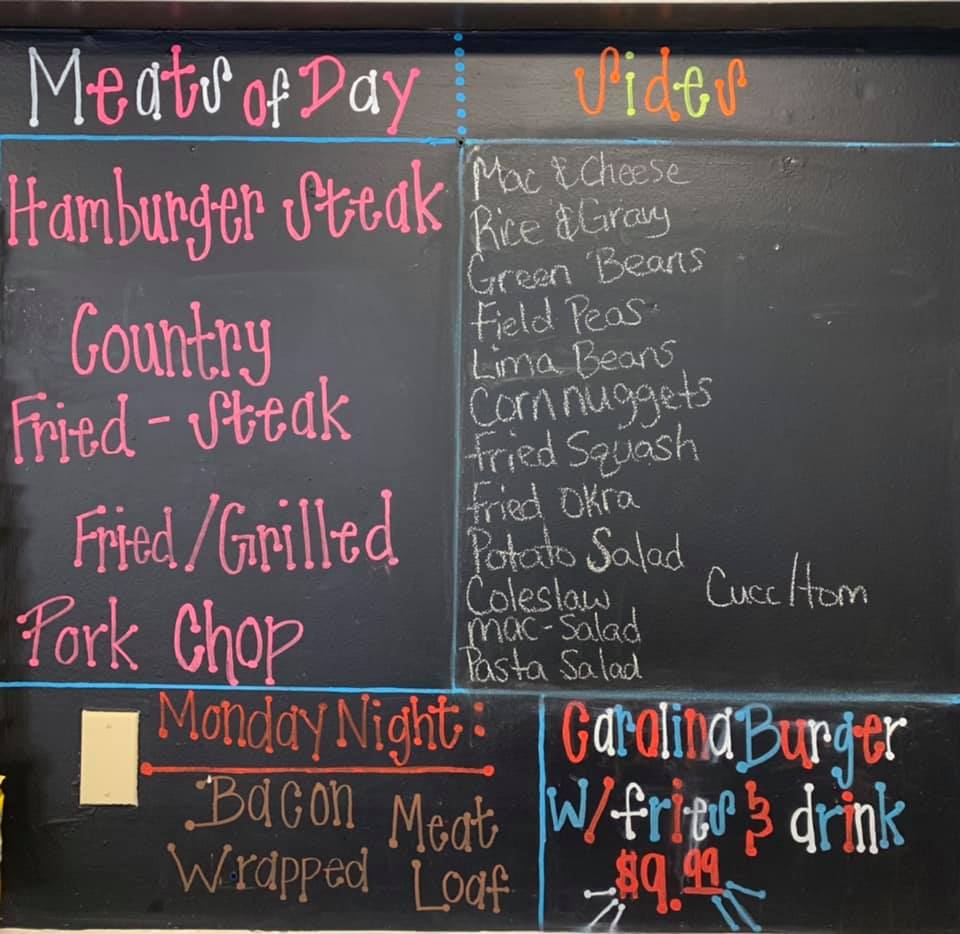 Meats of Day
Hamburger Steak
Country
Fried - Steak
Fried/Grilled
Pork Chop
Sides
Mac & Cheese
Rice & Gravy
Green Beans
Field Peas
Lima Beans
Corn nuggets
Fried Squash
Fried Okra
Potato Salad
Coleslaw
Cucc/tom
mac-Salad
Pasta Salad
Monday Night:
Bacon Meat
Wrapped Loaf
Carolina Burger
w/ fries & drink
$9.99